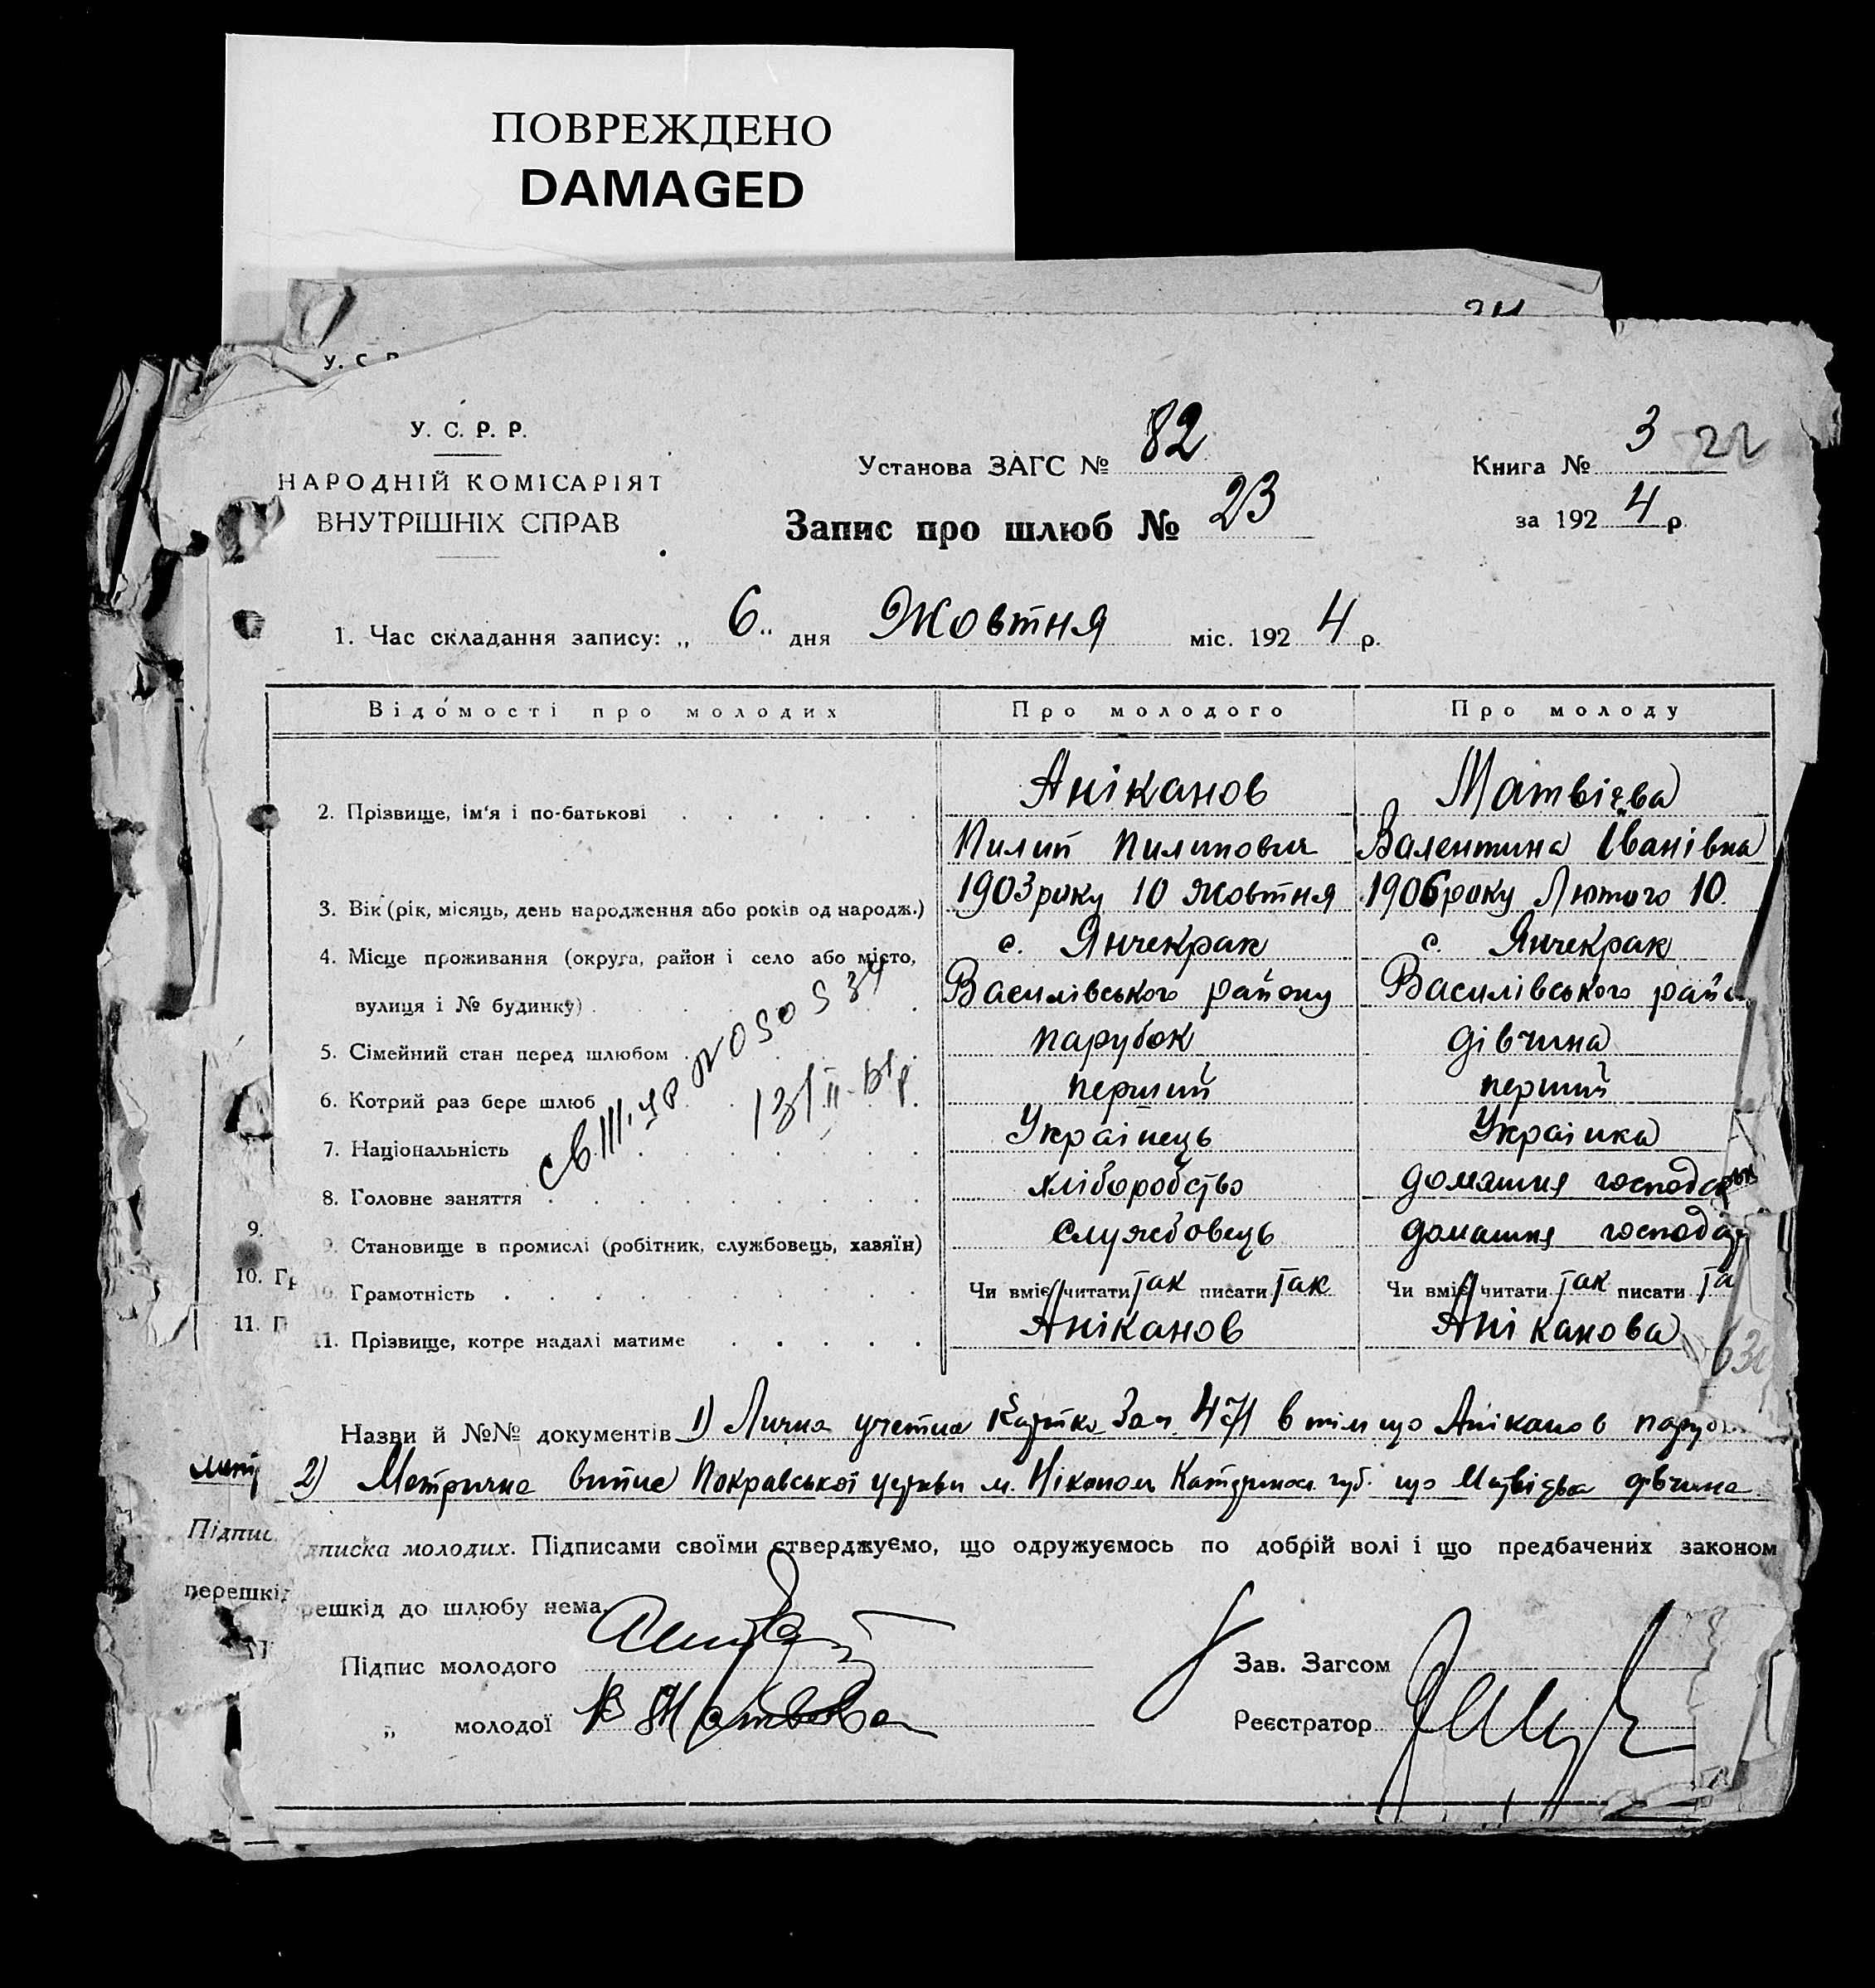 ПОВРЕЖДЕНО
DAMAGED
У. С. Р. Р.
НАРОДНІЙ КОМІСАРІЯТ
ВНУТРІШНІХ СПРАВ
Установа ЗАГС № 82
Книга № 3 22
Запис про шлюб № 23
за 1924 р.
1. Час складання запису: „ 6 " дня Жовтня міс. 1924 р.
Відомості про молодих Про молодого Про молоду
Аніканов Матвієва
2. Прізвище, ім'я і по-батькові
Пилип Пилипович Валентина Іванівна
3. Вік (рік, місяць, день народження або років од народж.) 1903 року 10 Жовтня 1906 року Лютого 10
4. Місце проживання (округа, район і село або місто, с. Янчекрак с. Янчекрак
вулиця і № будинку) Василівського району Василівського рай
5. Сімейний стан перед шлюбом парубок дівчина
6. Котрий раз бере шлюб перший перший
7. Національність Українець Українка
8. Головне заняття хліборобство домашня господар
9. Становище в промислі (робітник, службовець, хазяїн) службовець домашня господар
10. Грамотність Чи вміє читати так писати так Чи вміє читати так писати та
11. Прізвище, котре надалі матиме Аніканов Аніканова
Назви й №№ документів 1) Лична учетна картка За № 471 в тім що Аніканов паруб
2) Метрична випис Покравської церкви м. Нікополь Катеринос. губ. що Матвієва дівчина
дписка молодих. Підписами своїми стверджуємо, що одружуємось по добрій волі і що предбачених законом
решкід до шлюбу нема.
Підпис молодого
Зав. Загсом
„ молодої В Матвеева
Реєстратор